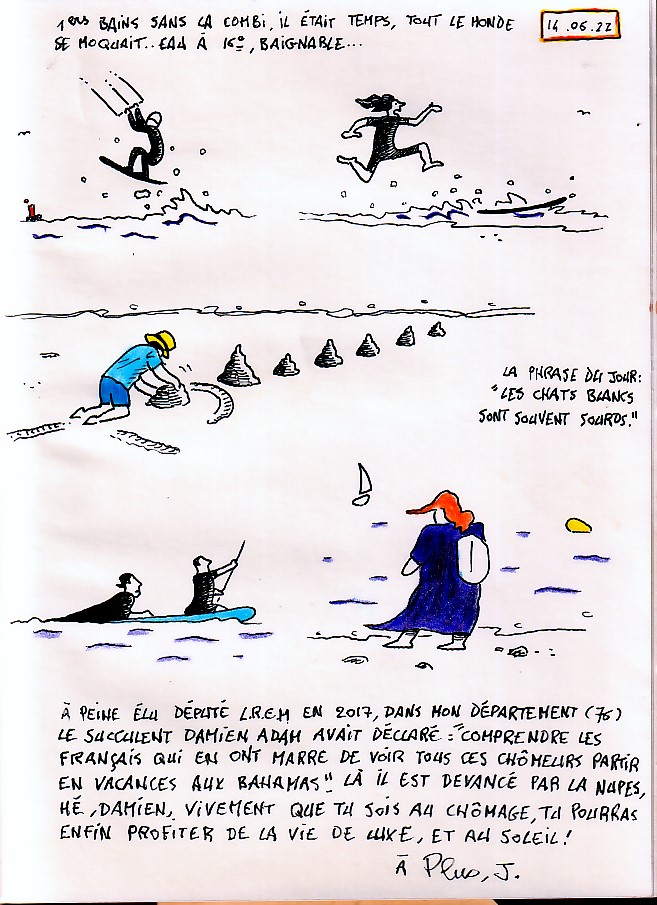 1ers BAINS SANS LA COMBI, IL ÉTAIT TEMPS, TOUT LE MONDE
SE MOQUAIT.. EAU À 16°, BAIGNABLE...
14.06.22
LA PHRASE DU JOUR:
"LES CHATS BLANCS
SONT SOUVENT SOURDS."
À PEINE ÉLU DÉPUTÉ L.R.E.M EN 2017, DANS MON DÉPARTEMENT (76)
LE SUCCULENT DAMIEN ADAM AVAIT DÉCLARÉ : "COMPRENDRE LES
FRANÇAIS QUI EN ONT MARRE DE VOIR TOUS CES CHÔMEURS PARTIR
EN VACANCES AUX BAHAMAS" LÀ IL EST DEVANCÉ PAR LA NUPES,
HÉ, DAMIEN, VIVEMENT QUE TU SOIS AU CHÔMAGE, TU POURRAS
ENFIN PROFITER DE LA VIE DE LUXE, ET AU SOLEIL !
À Plus, J.